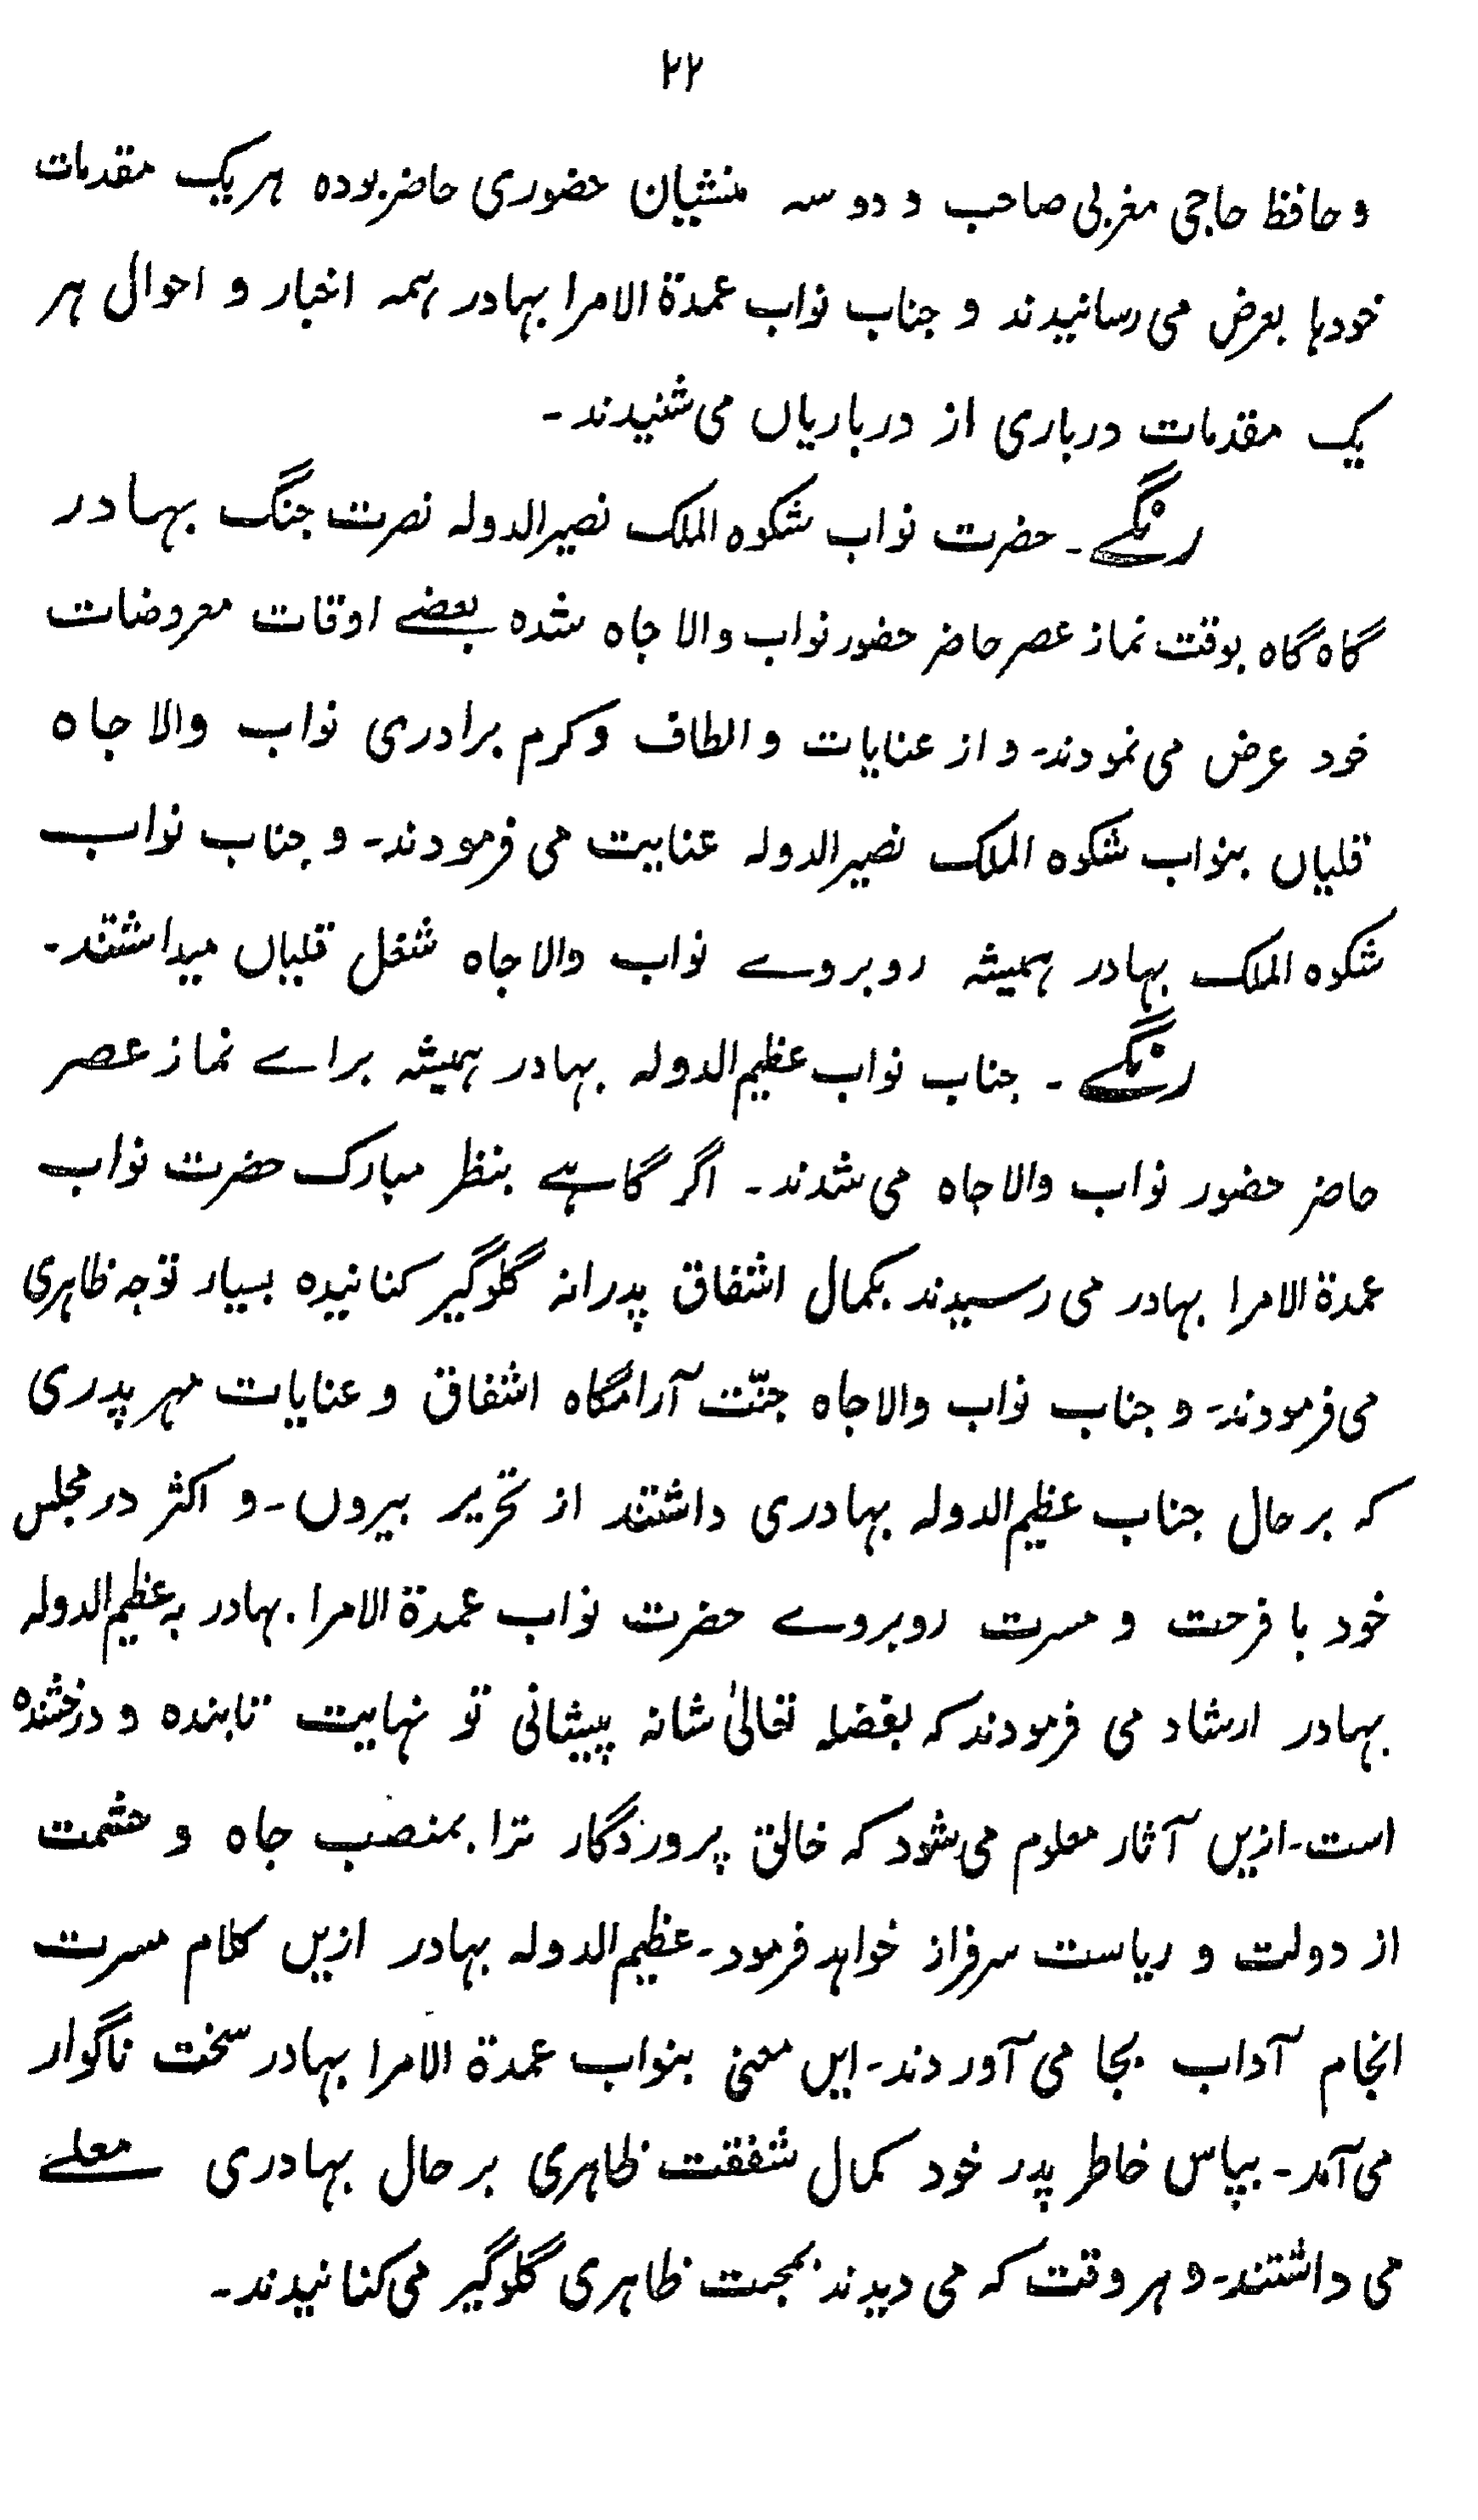 ۲۲
و حافظ حاجی مغربی صاحب و دو سه منشیان حضوری حاضر بوده ہر یک مقدمات
خودہا بعرض می رسانیدند و جناب نواب عمدة الامرا بہادر ہمہ اخبار و احوال ہر
یک مقدمات درباری از درباریاں می شنیدند۔
رنگے۔ حضرت نواب شکوہ الملک نصیر الدولہ نصرت جنگ بہادر
گاہ گاہ بوقت نماز عصر حاضر حضور نواب والا جاہ شدہ بعضے اوقات معروضات
خود عرض می نمودند۔ و از عنایات و الطاف و کرم برادری نواب والا جاہ
قلیاں بنواب شکوہ الملک نصیر الدولہ عنایت می فرمودند۔ و جناب نواب
شکوہ الملک بہادر ہمیشہ روبروے نواب والا جاہ شغل قلیاں میداشتند۔
رنگے۔ جناب نواب عظیم الدولہ بہادر ہمیشہ براے نماز عصر
حاضر حضور نواب والا جاہ می شدند۔ اگر گاہے بنظر مبارک حضرت نواب
عمدة الامرا بہادر می رسیدند بکمال اشفاق پدرانہ گلوگیر کنانیدہ بسیار توجہ ظاہری
می فرمودند۔ و جناب نواب والا جاہ جنّت آرامگاہ اشفاق و عنایات مہر پدری
کہ بر حال جناب عظیم الدولہ بہادری داشتند از تحریر بیروں۔ و اکثر در مجلس
خود با فرحت و مسرت روبروے حضرت نواب عمدة الامرا بہادر بہ عظیم الدولہ
بہادر ارشاد می فرمودند کہ بفضلہ تعالیٰ شانہ پیشانی تو نہایت تابندہ و درخشندہ
است۔ ازیں آثار معلوم می شود کہ خالق پروردگار ترا بمنصب جاہ و حشمت
از دولت و ریاست سرفراز خواہد فرمود۔ عظیم الدولہ بہادر ازیں کلام مسرت
انجام آداب بجا می آوردند۔ ایں معنی بنواب عمدة الامرا بہادر سخت ناگوار
می آمد۔ بپاس خاطر پدر خود کمال شفقت ظاہری بر حال بہادری معلے
می داشتند۔ و ہر وقت کہ می دیدند بمحبت ظاہری گلوگیر می کنانیدند۔